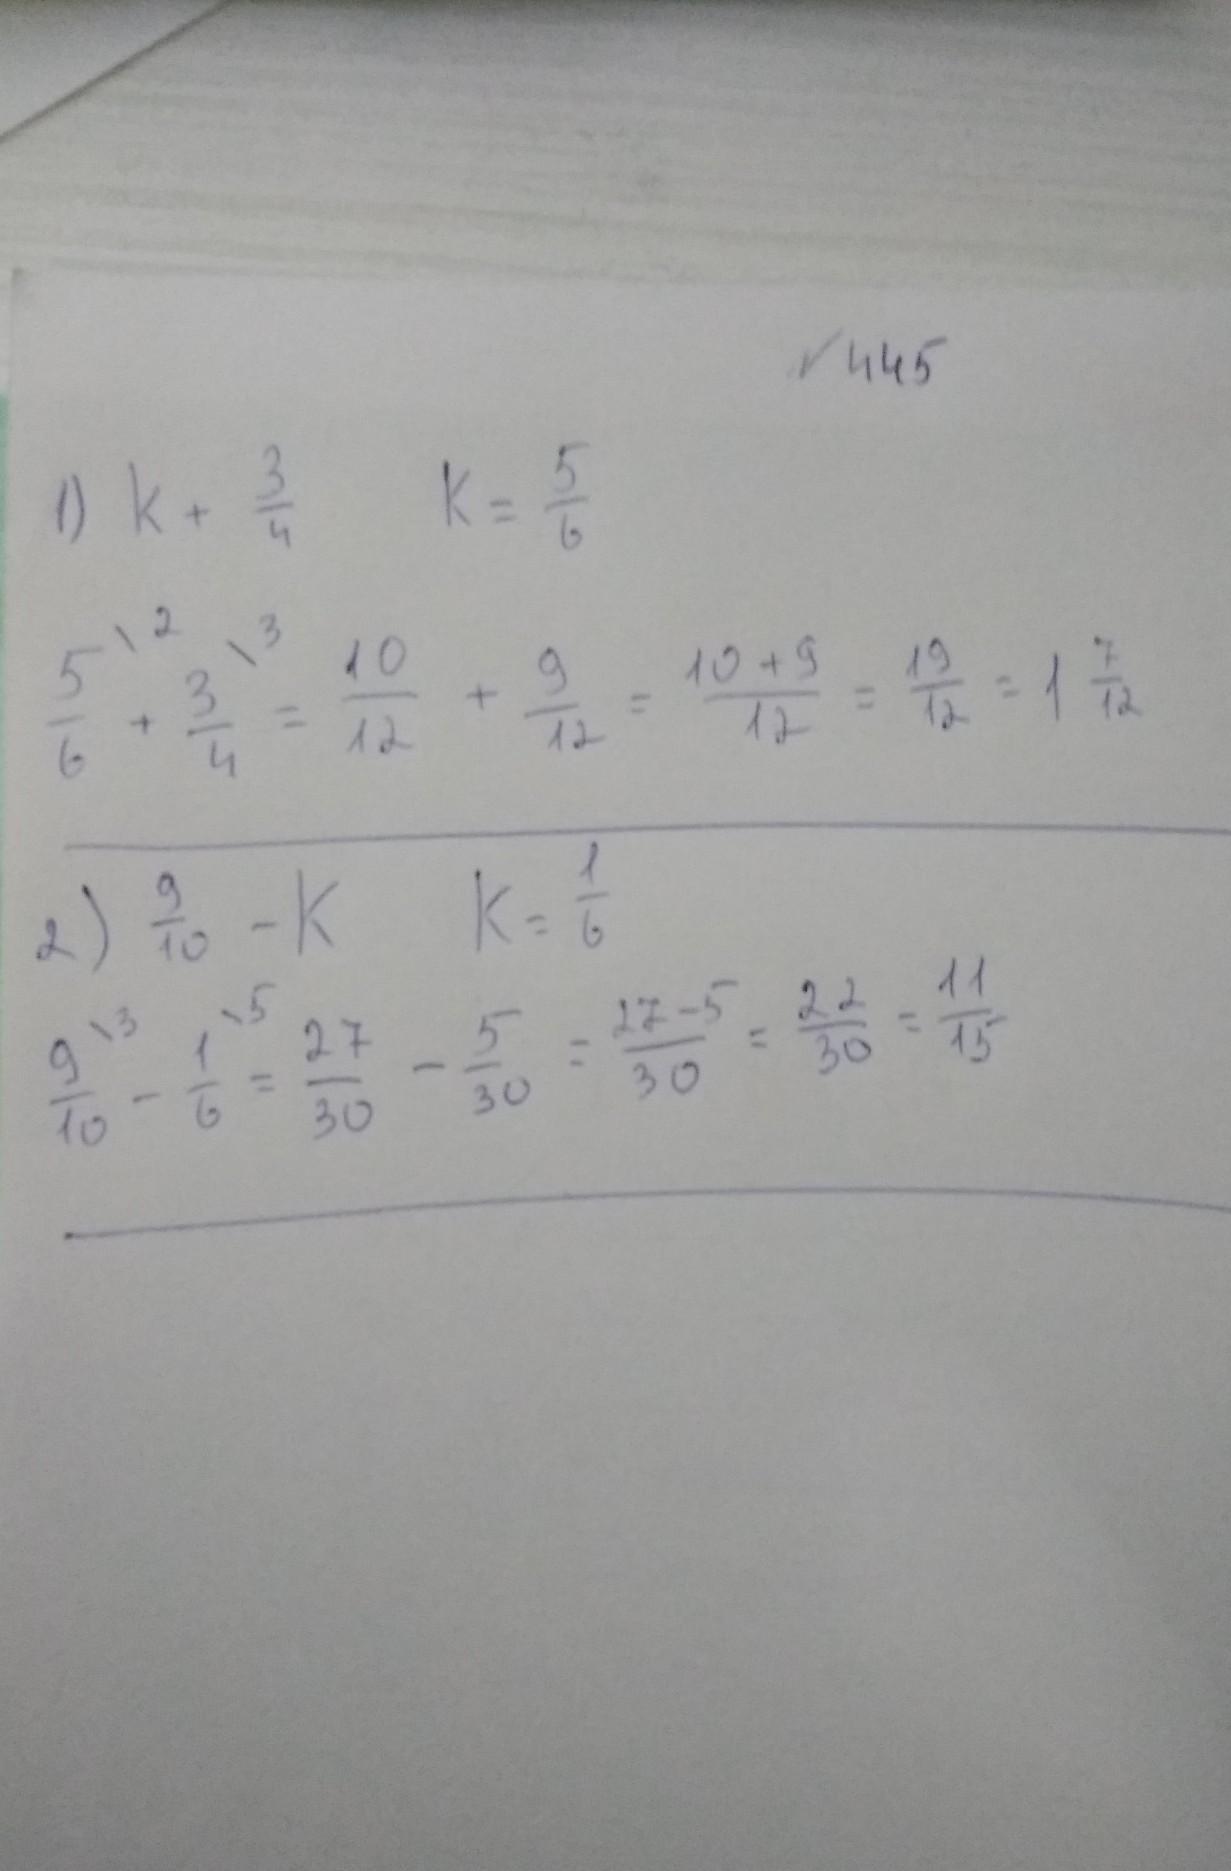 √445
1) k + 3/4 K = 5/6
5/6 \2 + 3/4 \3 = 10/12 + 9/12 = 10+9/12 = 19/12 = 1 7/12
2) 9/10 - K K = 1/6
9/10 \3 - 1/6 \5 = 27/30 - 5/30 = 27-5/30 = 22/30 = 11/15